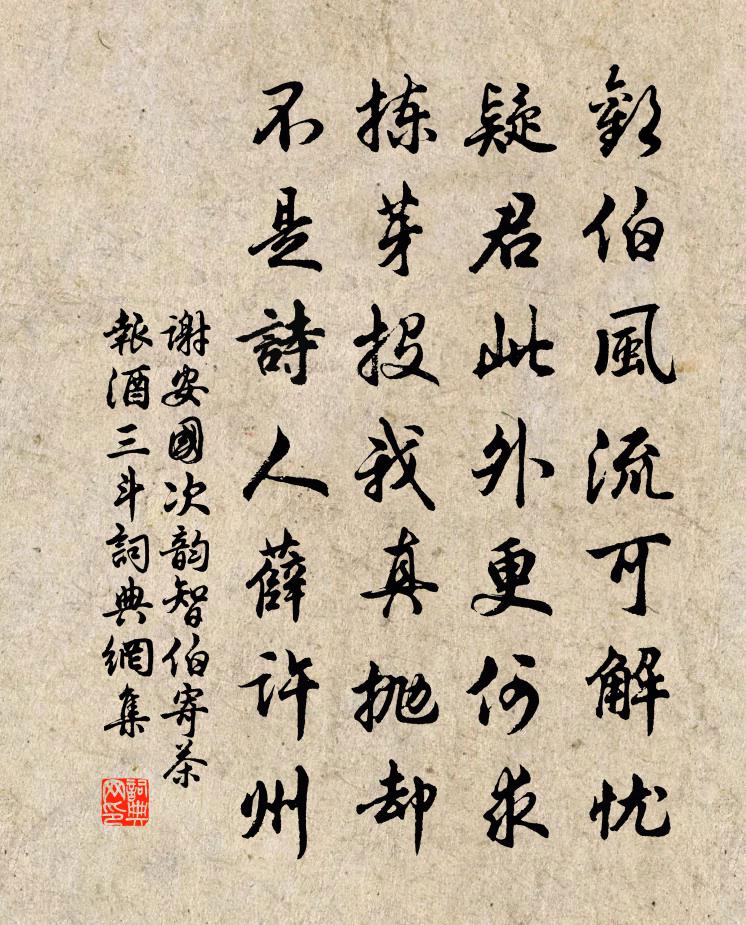 歡伯風流可解忧
疑君此外更何求
揀芽投我真拋却
不是詩人薛許州
謝安國次韵智伯寄茶
報酒三斗詞典網集
詞典网印